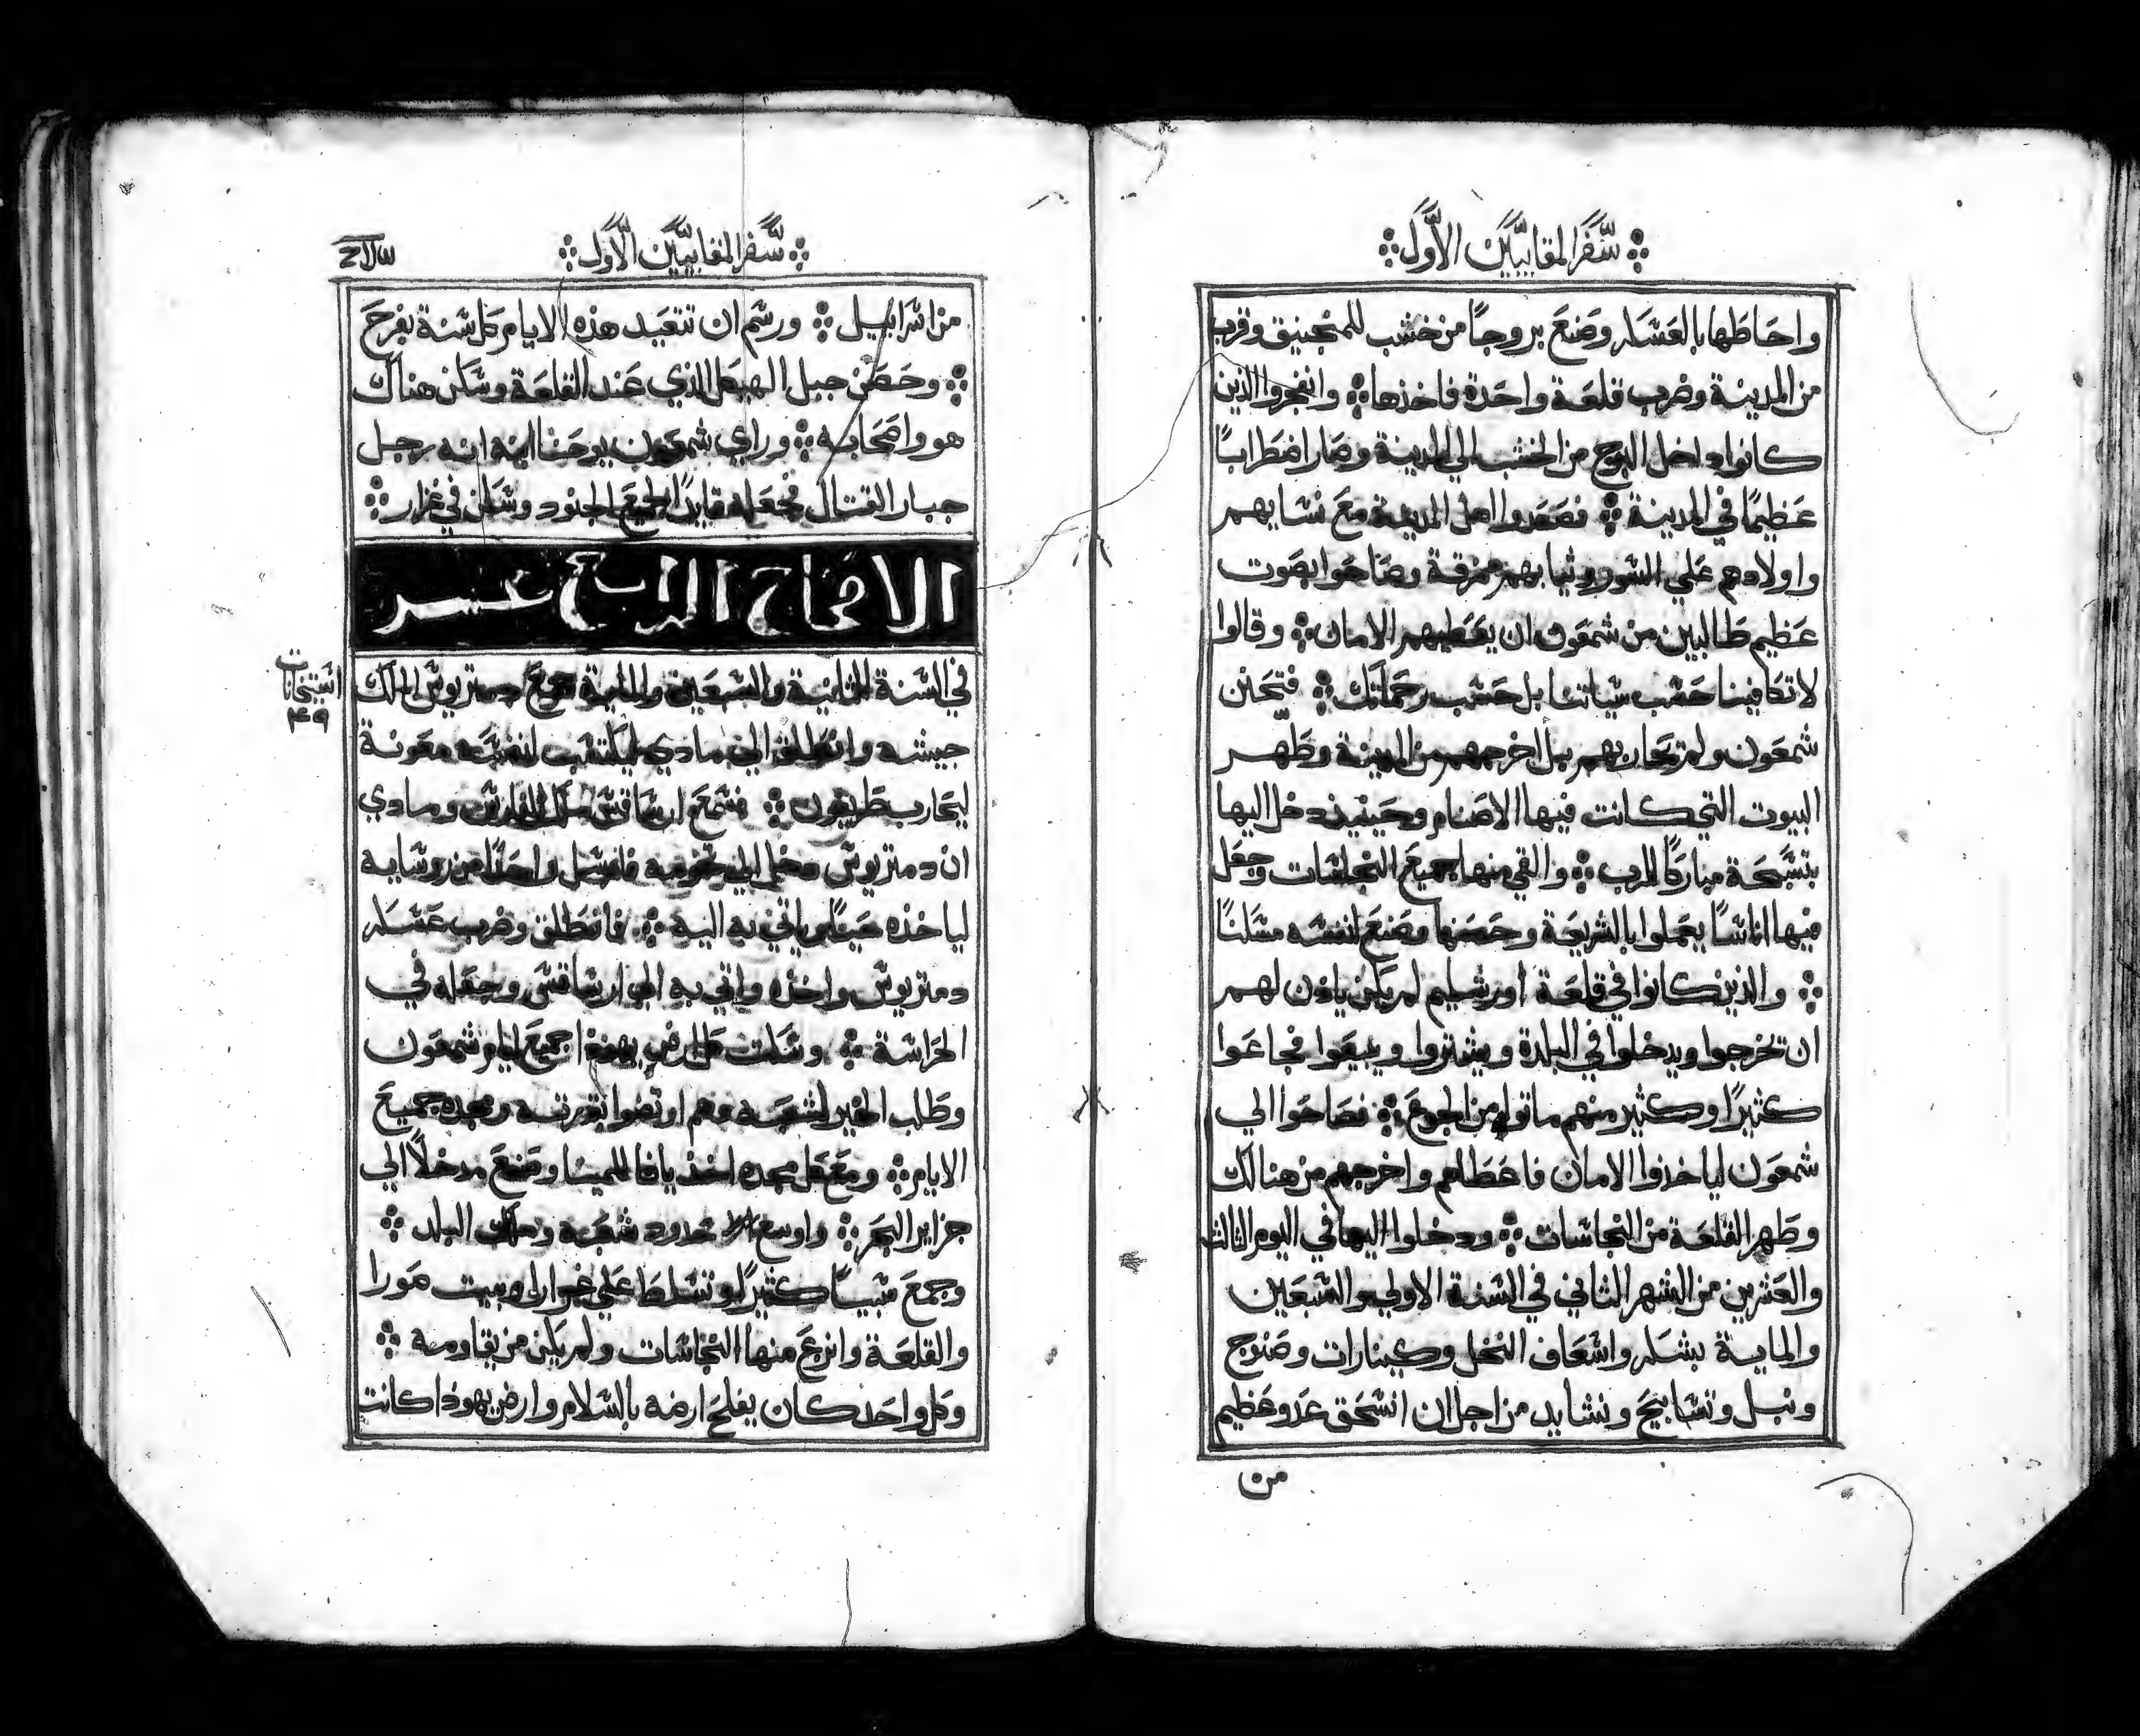 سفر المقابيين الاول
واحاطها بالعسكر وصنع بروجًا من خشب للمنجنيق وقرب
من المدينة وضرب قلعة واحدة فاخذها وانفجروا الذين
كانوا داخل البرج من الخشب الي المدينة وصار اضطرابًا
عظيمًا في المدينة فصعدوا اهل المدينة مع نسايهم
واولادهم علي السور وثيابهم ممزقة وصاحوا بصوت
عظيم طالبين من شمعون ان يعطيهم الامان وقالوا
لا تكافينا حسب سياتنا بل حسب رحماتك فتحنن
شمعون ولم يحاربهم بل اخرجهم من المدينة وطهر
البيوت التي كانت فيها الاصنام وحينيذ دخل اليها
بتسبحة مباركًا للرب والقي منها جميع النجاسات وجعل
فيها اناسًا يعملوا بالشريعة وحصنها وصنع لنفسه مسكنًا
والذين كانوا في قلعة اورشليم لم يكن ياذن لهم
ان يخرجوا ويدخلوا في البلدة ويشتروا ويبيعوا فجاعوا
كثيرًا وكثير منهم ماتوا من الجوع فصاحوا الي
شمعون لياخذوا الامان فاعطاهم واخرجهم من هنالك
وطهر القلعة من النجاسات ودخلوا اليها في اليوم الثالث
والعشرين من الشهر الثاني في السنة الاولي والسبعين
والماية بشكر واسعاف النخل وكينارات وصنوج
ونبل وتسابيح ونشايد من اجل ان انسحق عدو عظيم
من
سفر المقابيين الاول
من اسراييل ورسم ان تتعيد هذه الايام كل سنة بفرح
وحصن جبل الهيكل الذي عند القلعة وسكن هناك
هو واصحابه وراي شمعون يوحنا ابنه انه رجل
جبار القتال فجعله قايدًا لجميع الجنود وسكن في غزار
الاصحاح الرابع عشر
في السنة الثانية والسبعين والماية جمع دمتريوس الملك
جيشه وانطلق الي مادي ليكتسب لنفسه معونة
ليحارب طريفون فسمع ارساقس ملك فارس ومادي
ان دمتريوس دخل الي تخومه فارسل واحدًا من روسايه
لياخذه حيًا وياتي به اليه فانطلق وضرب عسكر
دمتريوس واخذه واتي به الي ارساقس وجعله في
الحراسة وسكت كل ارض يهوذا جميع ايام شمعون
وطلب الخير لشعبه وهم ارتضوا بقدرته ومجده جميع
الايام ومع كل مجده اخذ يافا للمينا وصنع مدخلًا الي
جزاير البحر واوسع حدود شعبه وملك البلد
وجمع سبيًا كثيرًا وتسلط علي غزارا وبيت صورا
والقلعة وانزع منها النجاسات ولم يكن من يقاومه
وكل واحد كان يفلح ارضه بالسلام وارض يهوذا كانت